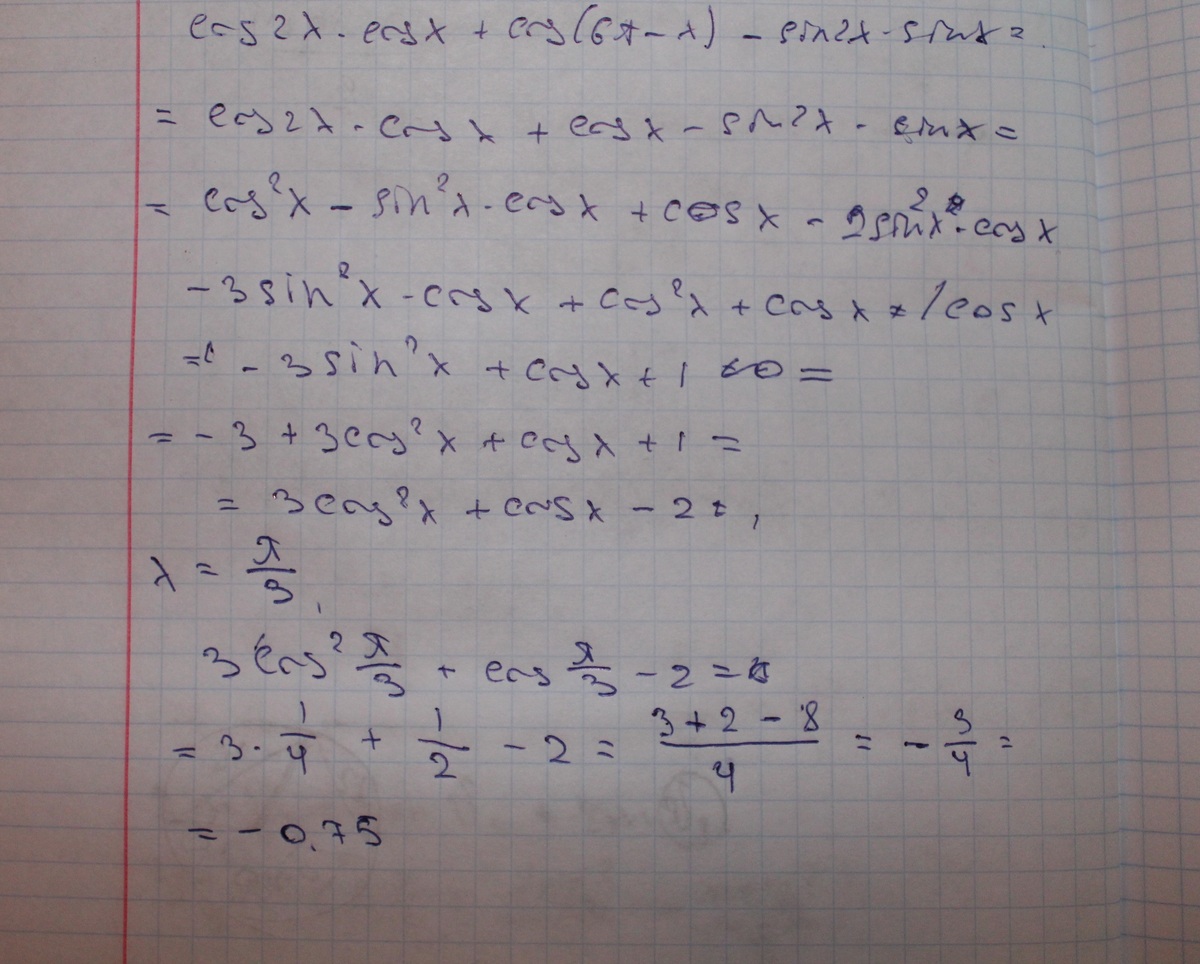 cos2x · cosx + cos(6π - x) - sin2x · sinx =
= cos2x · cosx + cosx - sin2x · sinx =
= cos²x - sin²x · cosx + cosx - 2sin²x · cosx
-3sin²x · cosx + cos²x + cosx = / cosx
= -3sin²x + cosx + 1 =
= -3 + 3cos²x + cosx + 1 =
= 3cos²x + cosx - 2,
x = π/3,
3cos² π/3 + cos π/3 - 2 =
= 3 · 1/4 + 1/2 - 2 = (3 + 2 - 8)/4 = -3/4 =
= -0,75